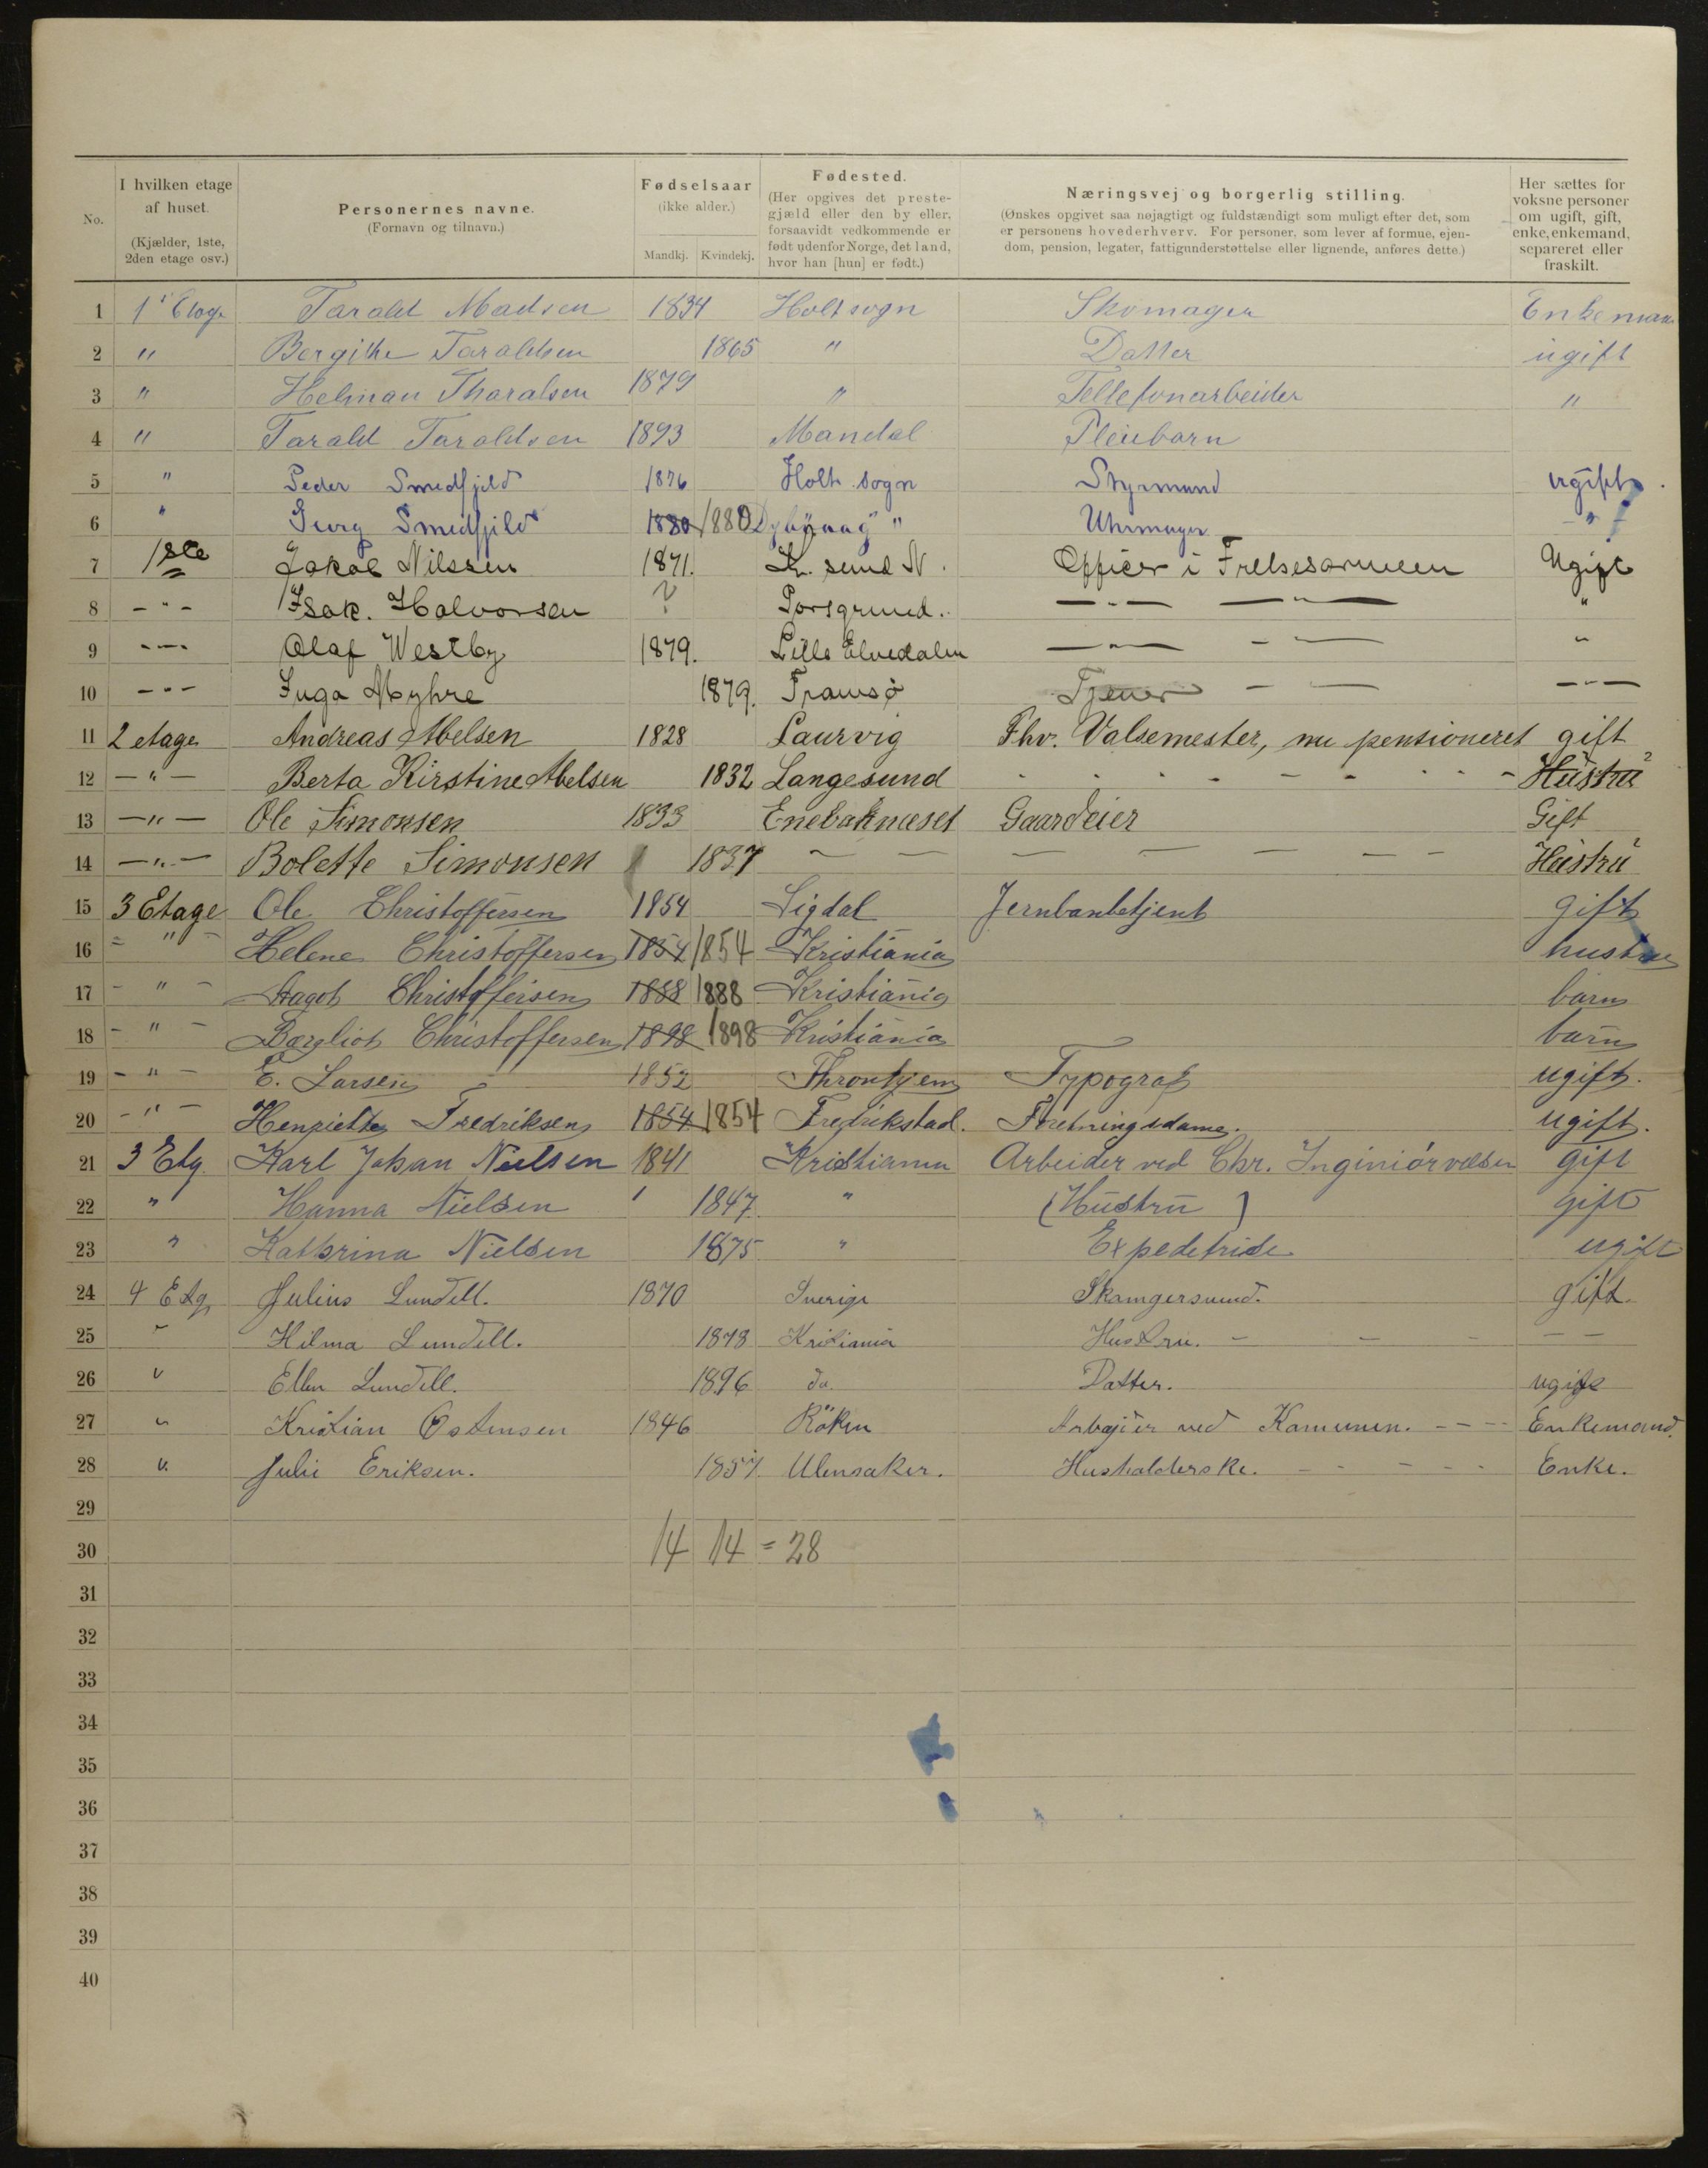 No. I hvilken etage af huset. (Kjælder, 1ste, 2den etage osv.) Personernes navne. (Fornavn og tilnavn.) Fødselsaar (ikke alder.) Mandkj. Kvindekj. Fødested. (Her opgives det prestegjæld eller den by eller, forsaavidt vedkommende er født udenfor Norge, det land, hvor han [hun] er født.) Næringsvej og borgerlig stilling. (Ønskes opgivet saa nøjagtigt og fuldstændigt som muligt efter det, som er personens hovederhverv. For personer, som lever af formue, ejendom, pension, legater, fattigunderstøttelse eller lignende, anføres dette.) Her sættes for voksne personer om ugift, gift, enke, enkemand, separeret eller fraskilt.
1 1ste Etage Tarald Madsen 1834 Holt sogn Skomager Enkeman
2 " Bergithe Taraldsen 1865 " Datter ugift
3 " Helman Tharalsen 1879 " Tellefonarbeider "
4 " Tarald Taraldsen 1893 Mandal Pleiebarn
5 " Peder Smedfjeld 1876 Holt sogn Styrmand ugift.
6 " Georg Smedfjeld 1880 1880 Dybvaag " Uhrmager - " -
7 1ste Jakob Nilssen 1871. Kr. sund N. Officer i Frelsesarmeen Ugift
8 - " - Isak. Halvorsen ? Porsgrund. - " - - " - "
9 - " - Olaf Westby 1879. Lille Elvedalen - " - - - "
10 - " - Inga Myhre 1879. Tromsø Tjener - - - " -
11 2 etage Andreas Abelsen 1828 Laurvig Fhv. Valsemester, nu pensioneret gift
12 - " - Berta Kirstine Abelsen 1832 Langesund - - - - - - - - Hustru
13 - " - Ole Simonsen 1833 Enebaknæset Gaardeier Gift
14 - " - Bolette Simonsen 1837 - - - - - - - - Hustru
15 3 Etage Ole Christoffersen 1854 Sigdal Jernbanbetjent gift
16 - " - Helene Christoffersen 1854 1854 Kristiania hustru
17 - " - Dagot Christoffersen 1888 1888 Kristiania barn
18 - " - Bergliot Christoffersen 1898 1898 Kristiania barn
19 - " - E. Larsen 1852 Throntjem Typograf ugift.
20 - " - Henriette Fredriksen 1854 1854 Fredrikstad. Foretningsdame. ugift.
21 3 Etg. Karl Johan Nielsen 1841 Kristiania Arbeider ved Chr. Inginiörvæsen gift
22 " Hanna Nielsen 1847 " (Hustru) gift
23 " Kathrina Nielsen 1875 " Expeditride ugift
24 4 Etg. Julius Lundell. 1870 Sverige Skamgersvend. gift.
25 " Hilma Lundell. 1873 Kristiania Hustru. - - - - -
26 " Ellen Lundell. 1896 do. Datter. ugift
27 " Kristian Ostensen 1846 Röken Arbejder ved Kamunen. - - - Enkemand.
28 " Julie Eriksen. 1857. Ulensaker. Husholderske. - - - - - Enke.
29
30 14 14 = 28
31
32
33
34
35
36
37
38
39
40